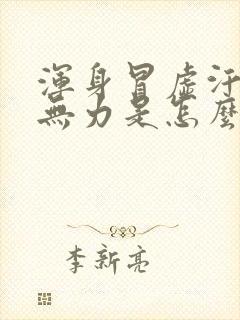 渾身冒虛汗
無力是怎麼
李新亮